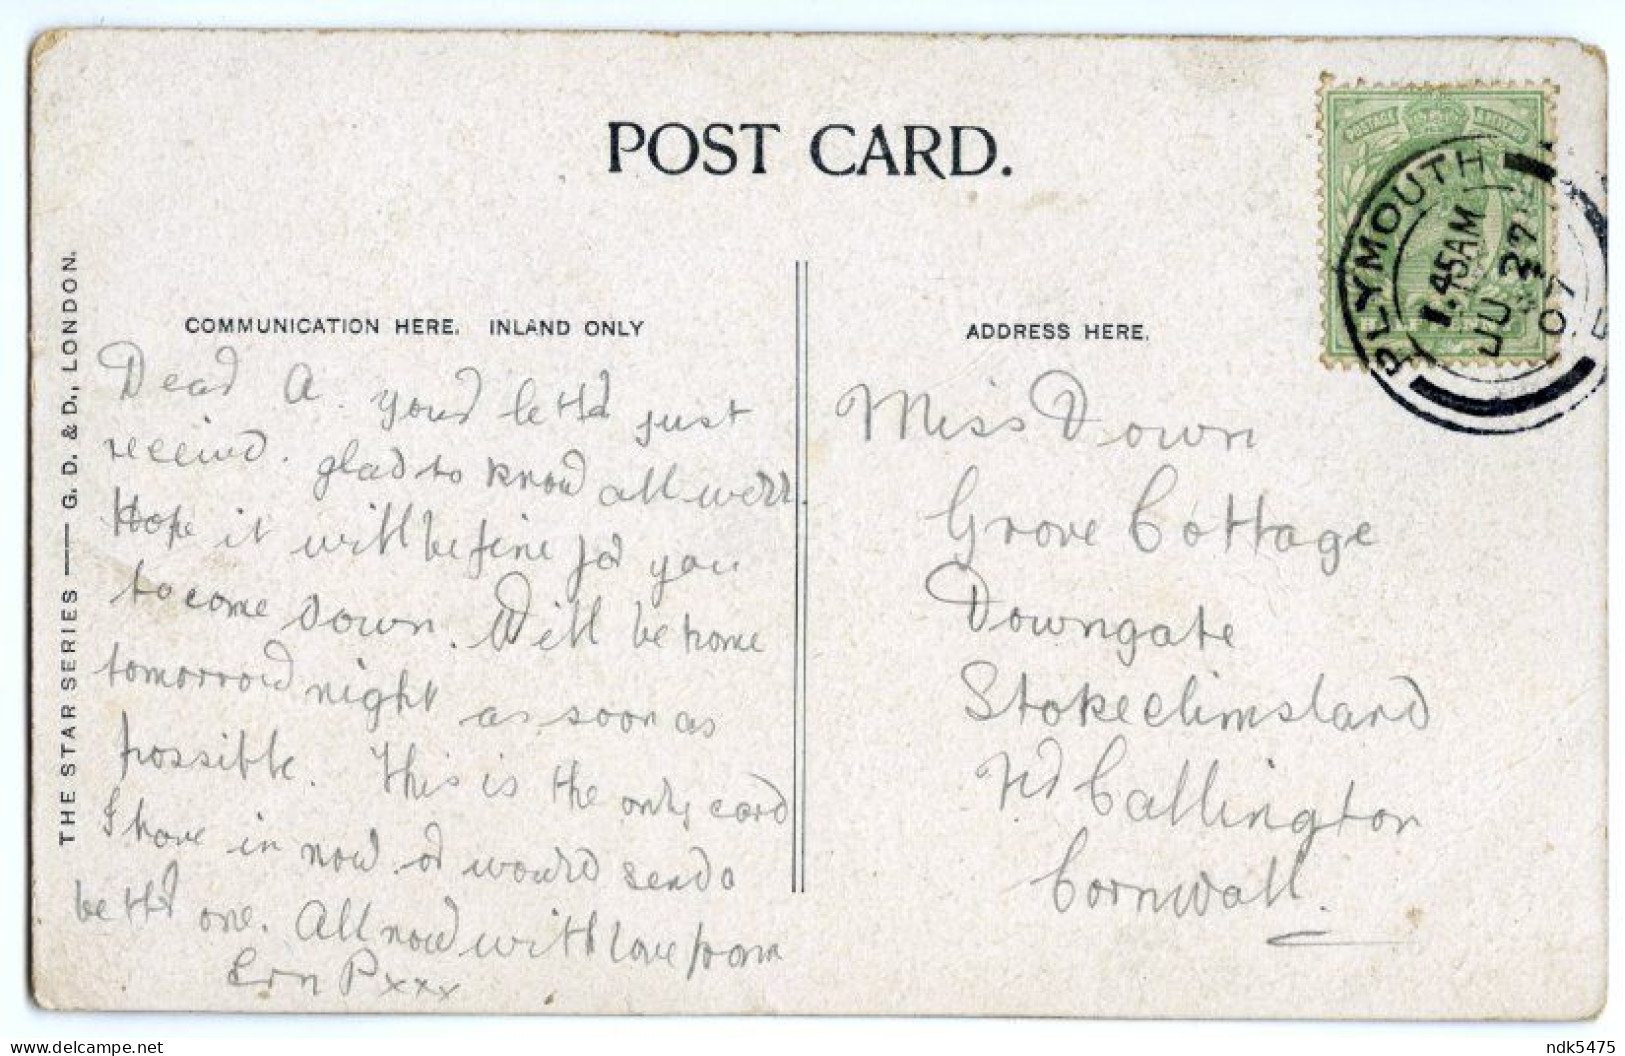 POST CARD.
THE STAR SERIES — G. D. & D., LONDON.
COMMUNICATION HERE. INLAND ONLY
ADDRESS HERE.
PLYMOUTH
1.45AM
JU 27
07
Dear A. your letter just
received. glad to know all well.
Hope it will be fine for you
to come down. Will be home
tomorrow night as soon as
possible. This is the only card
I have in now or would send a
better one. All now with love from
Ern P xxx
Miss Down
Grove Cottage
Downgate
Stokeclimsland
Nr Callington
Cornwall.
delcampe.net
ndk5475